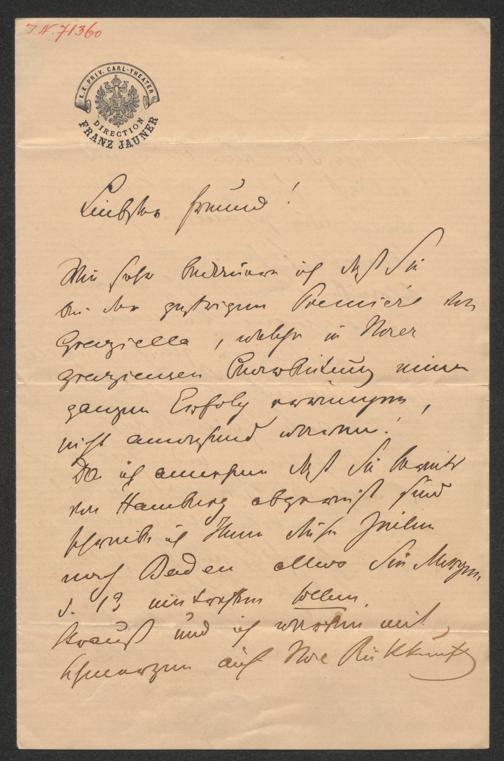 J.N. 71360
K.K. PRIV. CARL-THEATER
DIRECTION
FRANZ JAUNER
Liebster Freund!
Wie sehr bedauere ich daß Sie
bei der gestrigen Premiere von
Graziella, welche in Ihrer
graziensen Bearbeitung einen
ganzen Erfolg errungen,
nicht anwesend waren!
Da ich annehme daß Sie bereits
von Hamburg abgereist sind
schreibe ich Ihnen diese Zeilen
nach Baden allwo Sie Morgen
d. 19 eintreffen wollen.
Strauß und ich warten mit
Schmerzen auf Ihre Rückkunft